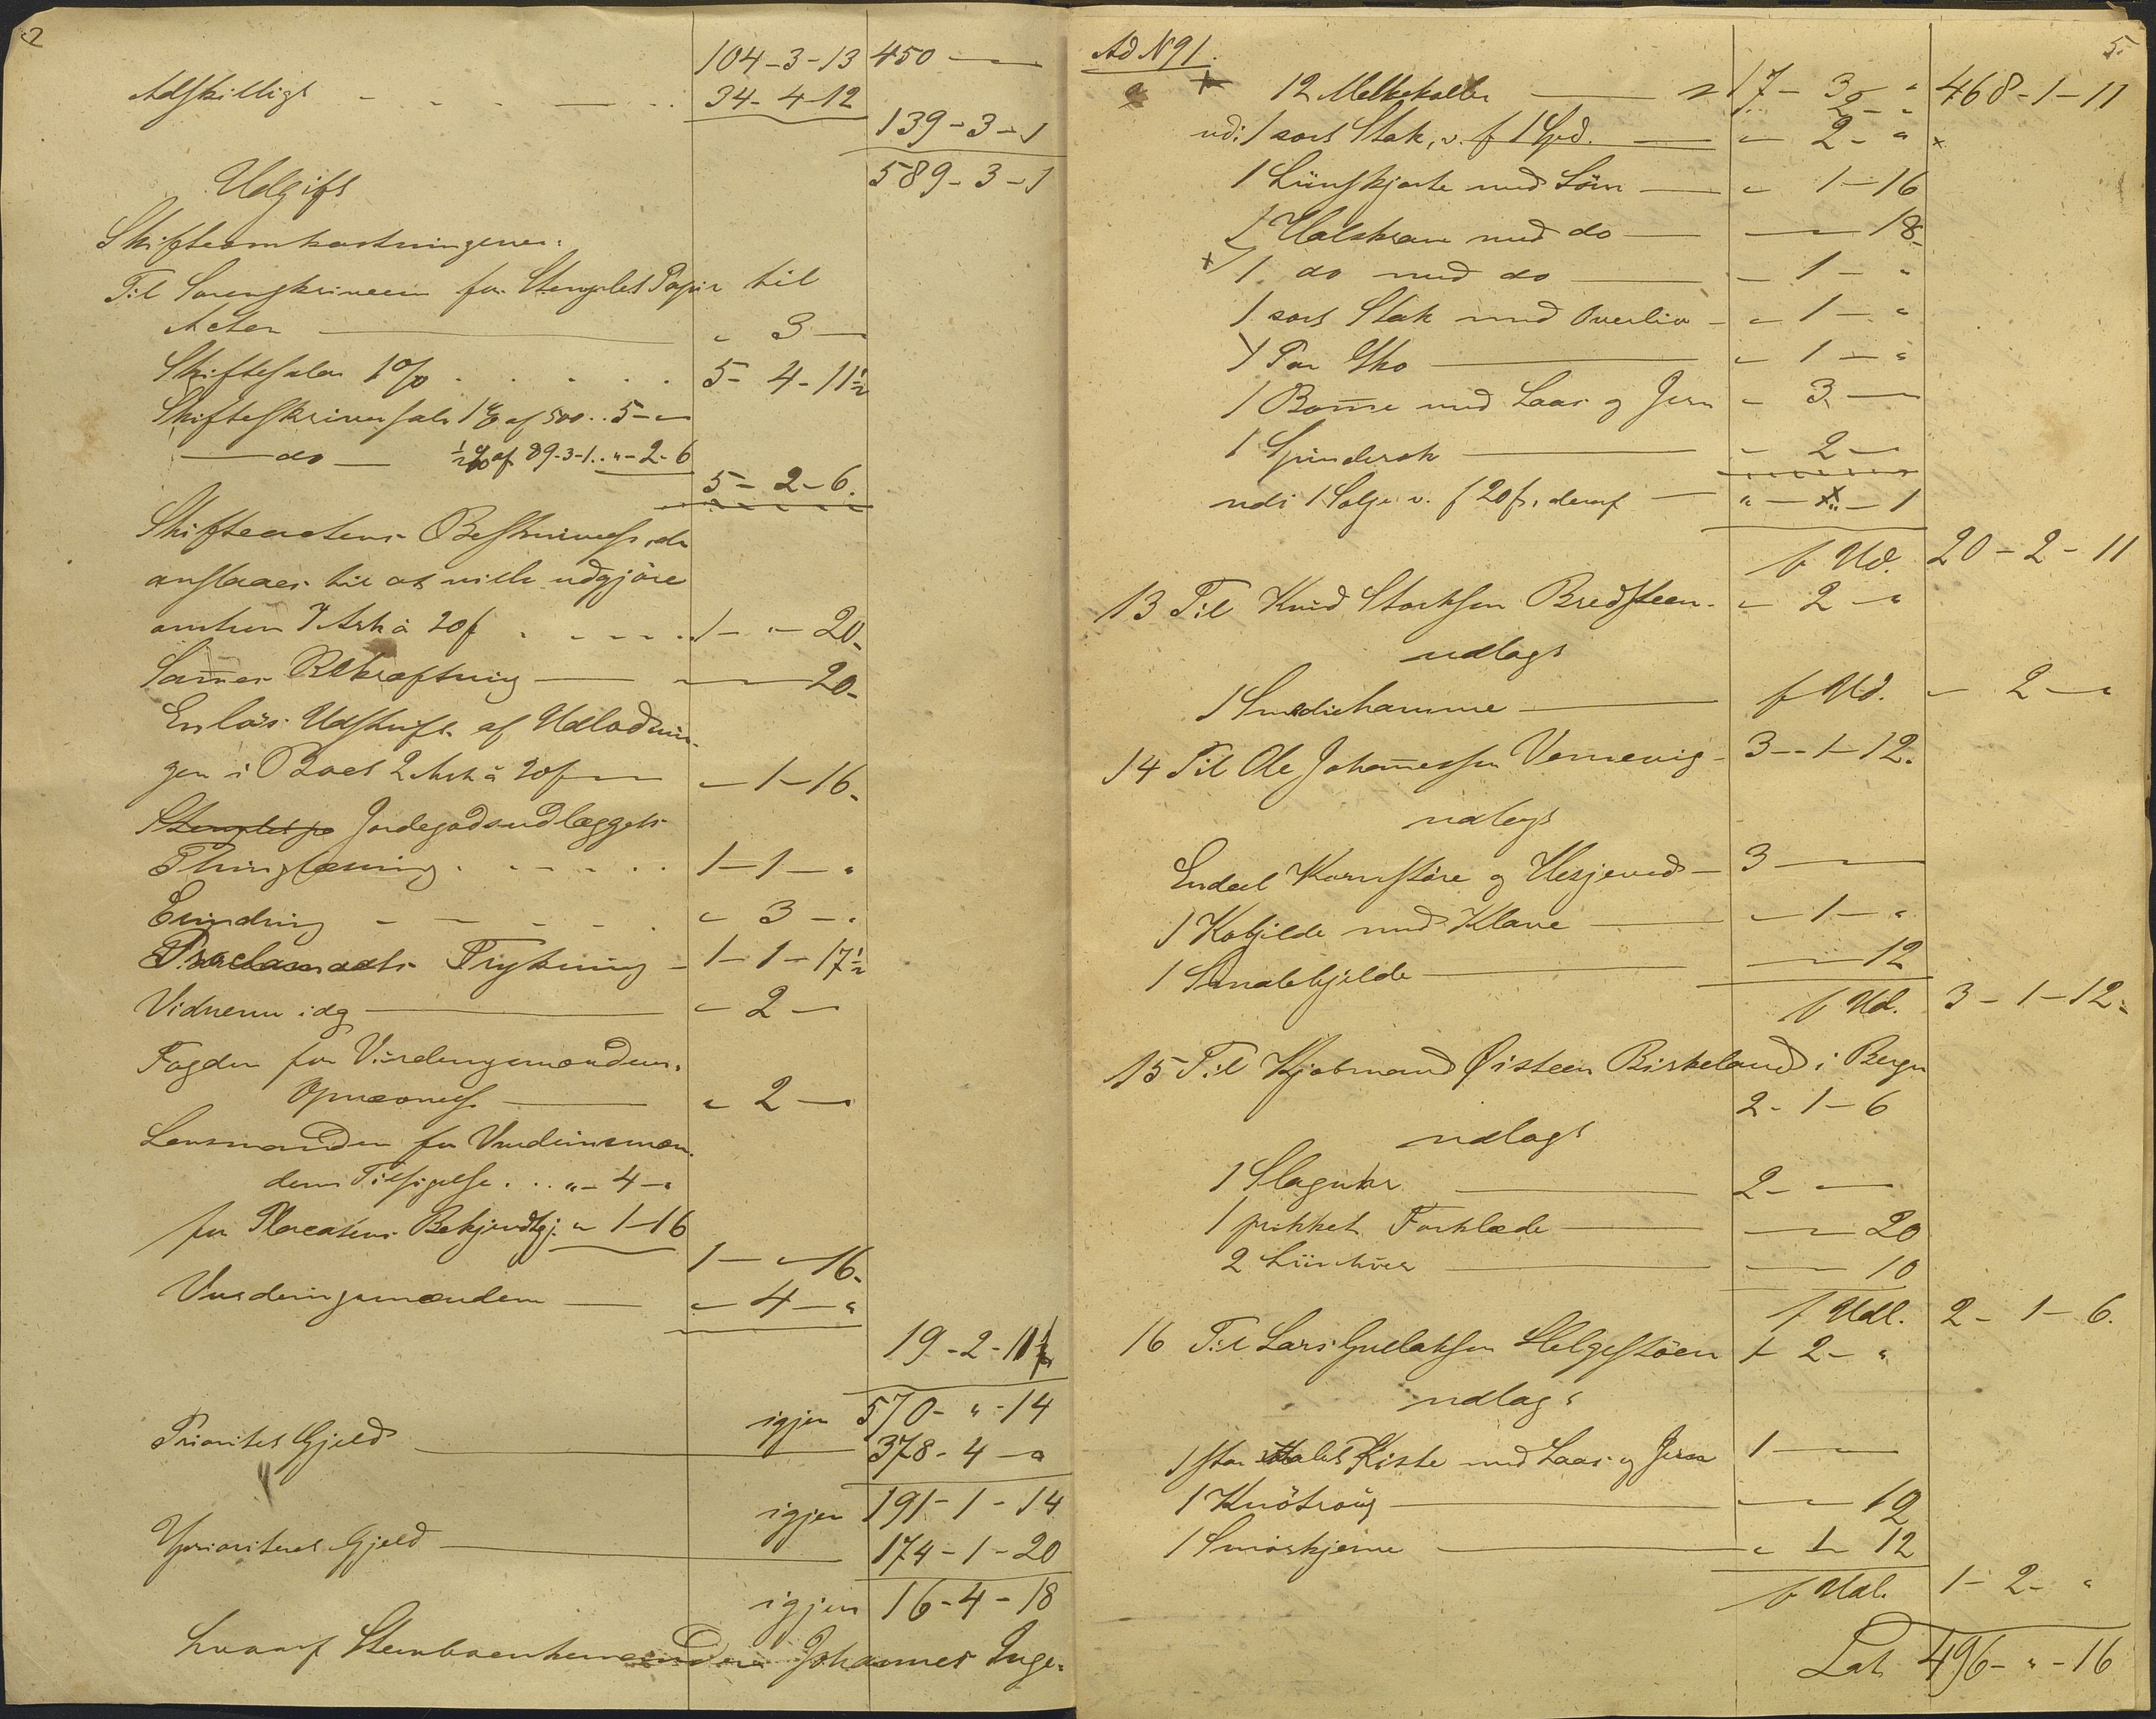 2
104-3-13 450 —
Adskilligt - - - — . . 34-4-12
139-3-1
589-3-1
Udgift
Skifteomkostningerne:
Til Sorenskriveren for Stemplet Papir til
Acten — " 3 —
Skiftesalær 1 % . . . . . 5-4-11½
Skifteskriversalr 1 % af 500 . . 5-"-
— do — ½ % af 89-3-1 . . "-2-6
5-2-6.
Skifteactens Beskrivelse, der
anslaaes til at ville udgjöre
omtrent 7 Ark à 20 f . - - - . 1-"-20-
Sammes Bekræftning — — 20-
En løs Udskrift af Udlodnin-
gen i Boet 2 Ark à 20 f — - 1-16-
Stemplet pa Jordegodsudlæggets
Thinglæsning . - - - . . 1-1-"
Erindring - - - - . " 3-"
Proclamaets Trykning - 1-1-17½
Vidnerne idag — " 2 —
Fogden for Vurderingsmændenes
Opnævnelse — " 2 —
Lensmanden for Vurderingsmæn-
denes Tilsigelse . . . "-4-"
for Placatens Bekjendtgj. " 1-16
1-"-16-
Vurderingsmændene — " 4-"
19-2-11
igjen 570-"-14
Prioritet Gjeld — 378-4-"
igjen 191-1-14
Uprioriteret Gjeld — 174-1-20
igjen 16-4-18
hvoraf Johannes Inge-
5.
Ad N 91.
12 Melkekoller — 17-3-" 468-1-11
2-"
udi 1 sort Stak, v. f 1 Spd. — " 2-"
1 Linskjorte med Söm — " 1-16
1 Halskrave med do — — 18-
1 do med do — - 1-"
1 sort Stak med Overliv - " 1-"
1 Par Sko — " 1-"
1 Bomme med Laas og Jern - 3 —
1 Spinderok — - 2 —
udi 1 Solje v. f 20 f, deraf — "-"-1
f Ud. 20-2-11
13 Til Knud Bredsteen. " 2-"
udlagt
1 Smediehammer — f Ud. - 2-"
14 Til Ole Johannessen - 3-1-12.
udlagt
Endeel Kornstöre og Hesjeved - 3 —
1 Kobjelde med Klave — - 1-"
1 Smalebjelde — — 12
f Ud. 3-1-12-
15 Til Kjøbmand Øisteen Birkeland i Bergen
2-1-6
udlagt
1 Slaguhr — 2- —
1 prikket Forklæde — — 20
2 — — 10
f Udl. 2-1-6.
16 Til Lars Gullaksen Helgestöen 1-2-"
udlagt
1 stor malet Kiste med Laas og Jern 1 —
1 Knötroug — — 12
1 Smörkjerne — " 1-12
f Udl. 1-2-"
Lat. 496-"-16